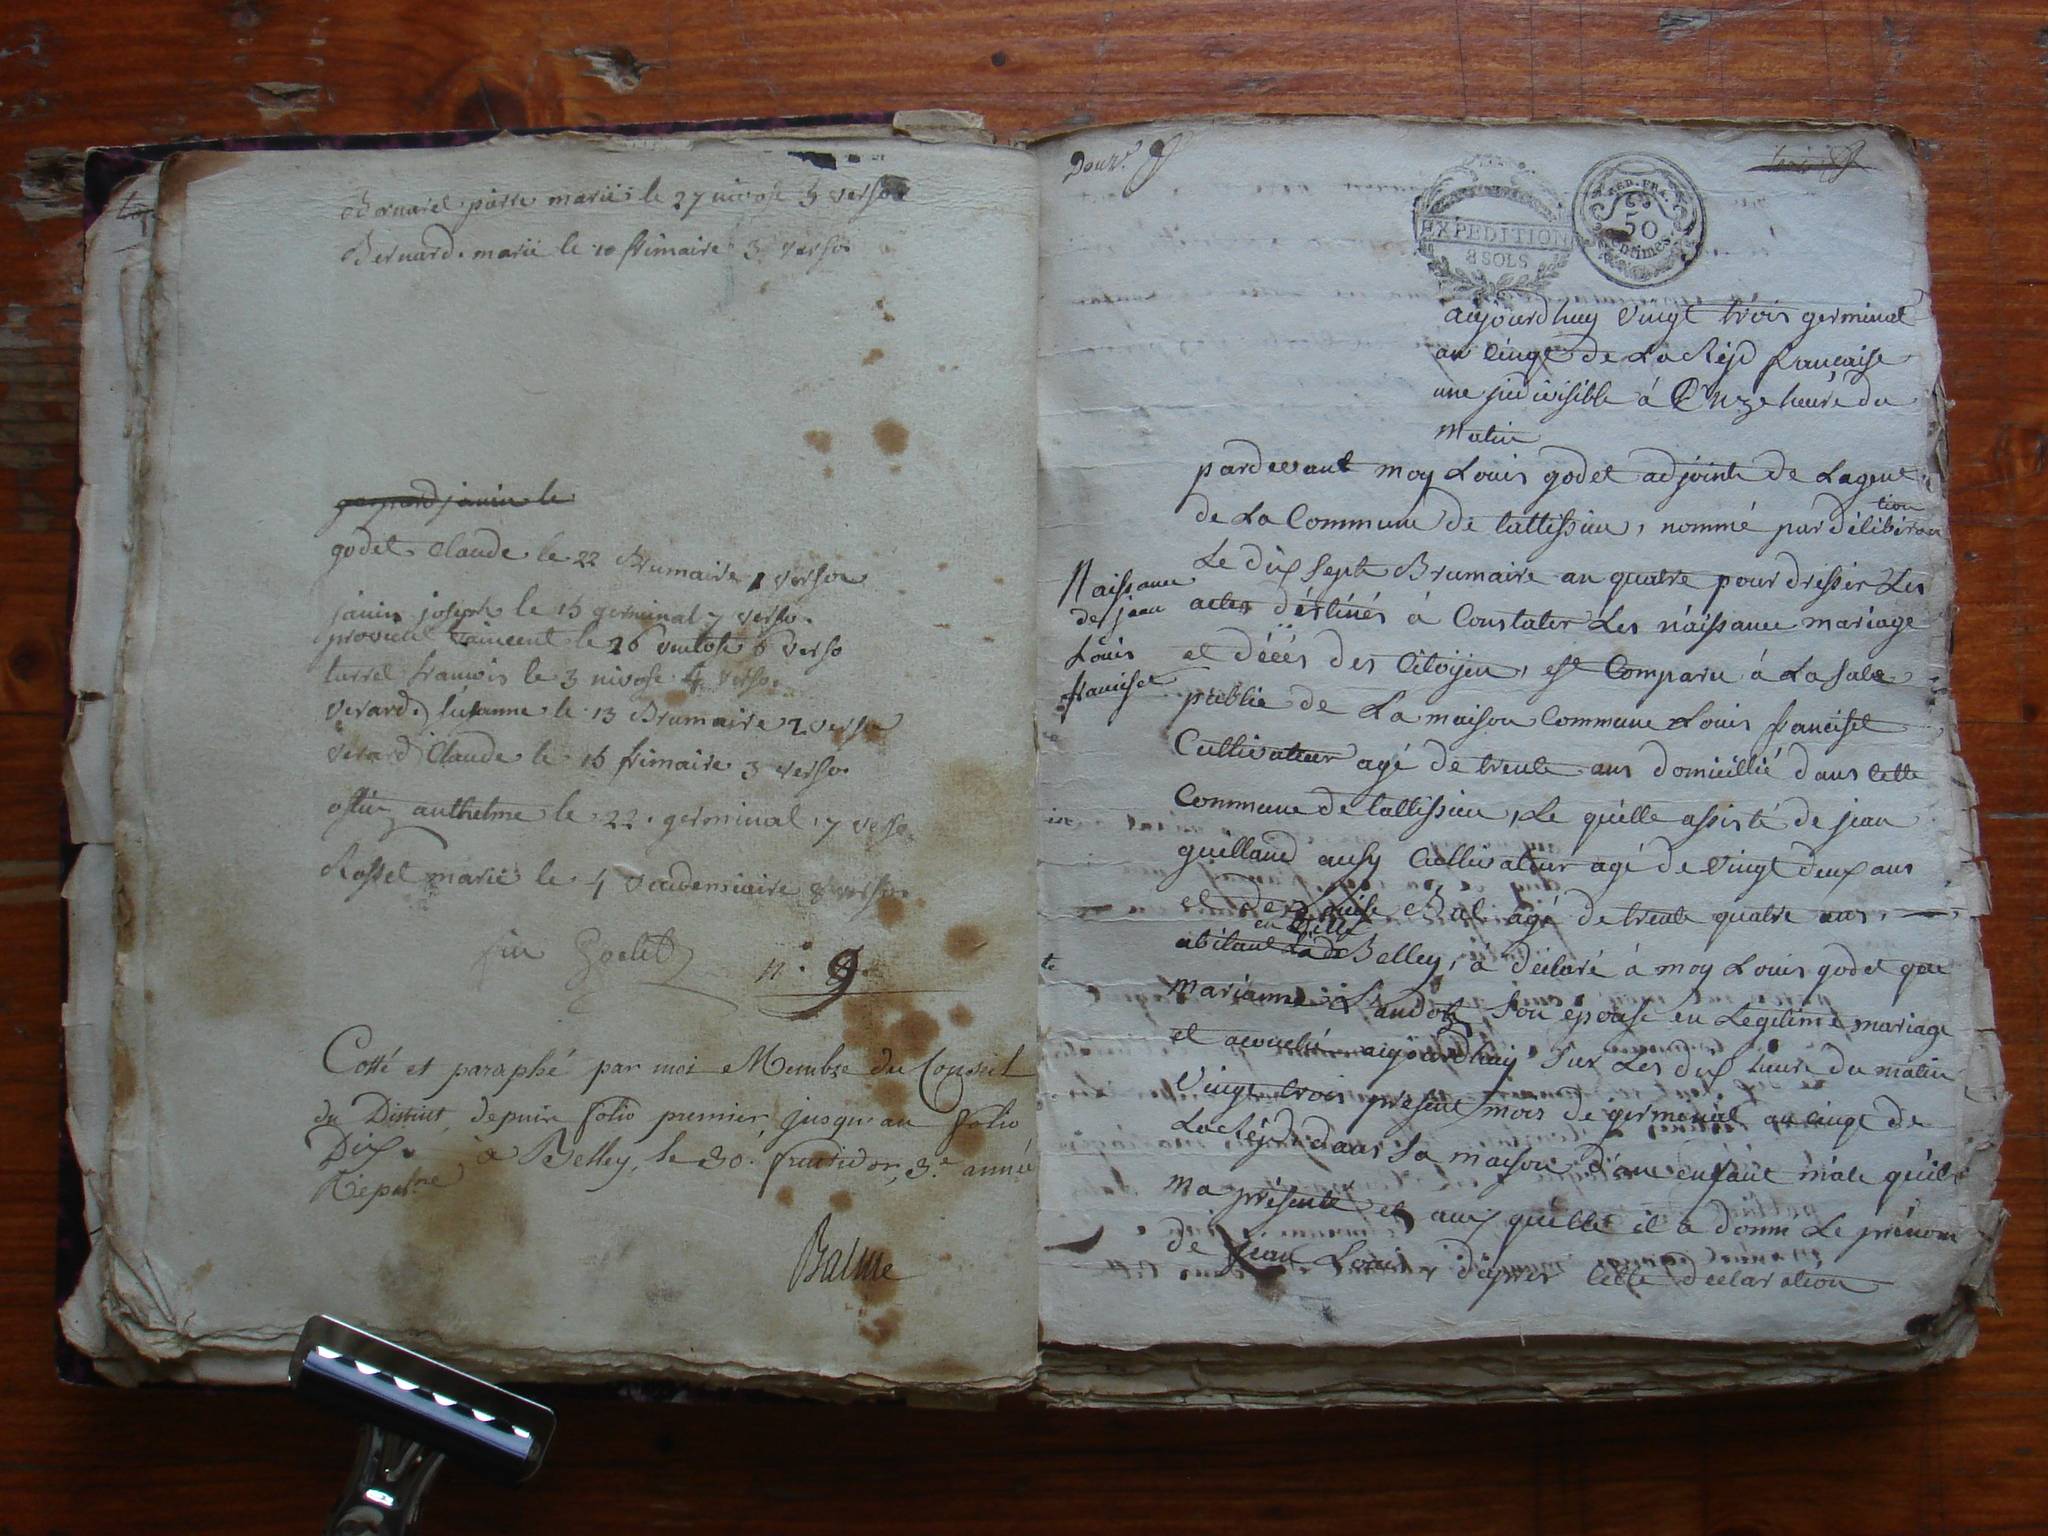 Bernard pierre marié le 27 nivose 3 verso
Bernard marie le 10 frimaire 3 verso
janin le
godet Claude le 22 Brumaire 1 verso
janin joseph le 15 germinal 7 verso
le 26 ventose 6 verso
turrel francois le 3 nivose 4 verso
verard susanne le 13 Brumaire 2 verso
verard Claude le 15 frimaire 3 verso
anthelme le 22 germinal 7 verso
Rosset marie le 4 vendemiaire 8 verso
fin Godet
n° 9
Cotté et paraphé par moi Membre du Conseil
du District, depuis folio premier, jusqu'au folio
Dix. à Belley, le 30 fructidor, 3e année
Repne
Balme
EXPEDITION
8 SOLS
REP. FRA.
50
centimes
aujourdhuy vingt trois germinal
an cinqt de La Rép francaise
une indivisible à Onze heure du
matin
pardevant moy Louis godet adjoint de Lagent
de La Commune de nommé par délibération
Le dix sept Brumaire an quatre pour dresser Les
actes déstinés à Constater Les náissance mariage
et décés des Citoyen, est Comparu à La sale
publié de La maison Commune Louis franciset
Cultivateur agé de trente ans domicillié dans cette
Commune de Le quélle assisté de jean
guilland ausy Cultivateur agé de vingt deux ans
et de Bal agé de trente quatre ans
abitant Belley, à déclaré à moy Louis godet que
marianne son épouse en Legitime mariage
et acouché aujourdhuy sur Les dix heure du matin
vingt trois présent mois de germinal an cinqt de
La Rép dans sa maison d'une enfant mále quil
ma présenté et auquelle il a donné Le prénom
de jean Louis d'apres cette declaration
Naissance
de jean
Louis
franciset